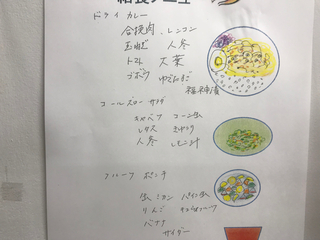 給食メニュー
ドライカレー
合挽肉、レンコン
玉ねぎ 人参
トマト 大葉
ゴボウ ゆでたまご
福神漬
コールスローサラダ
キャベツ コーン缶
レタス きゅうり
人参 レモン汁
フルーツ ポンチ
缶ミカン パイン缶
りんご
バナナ
サイダー